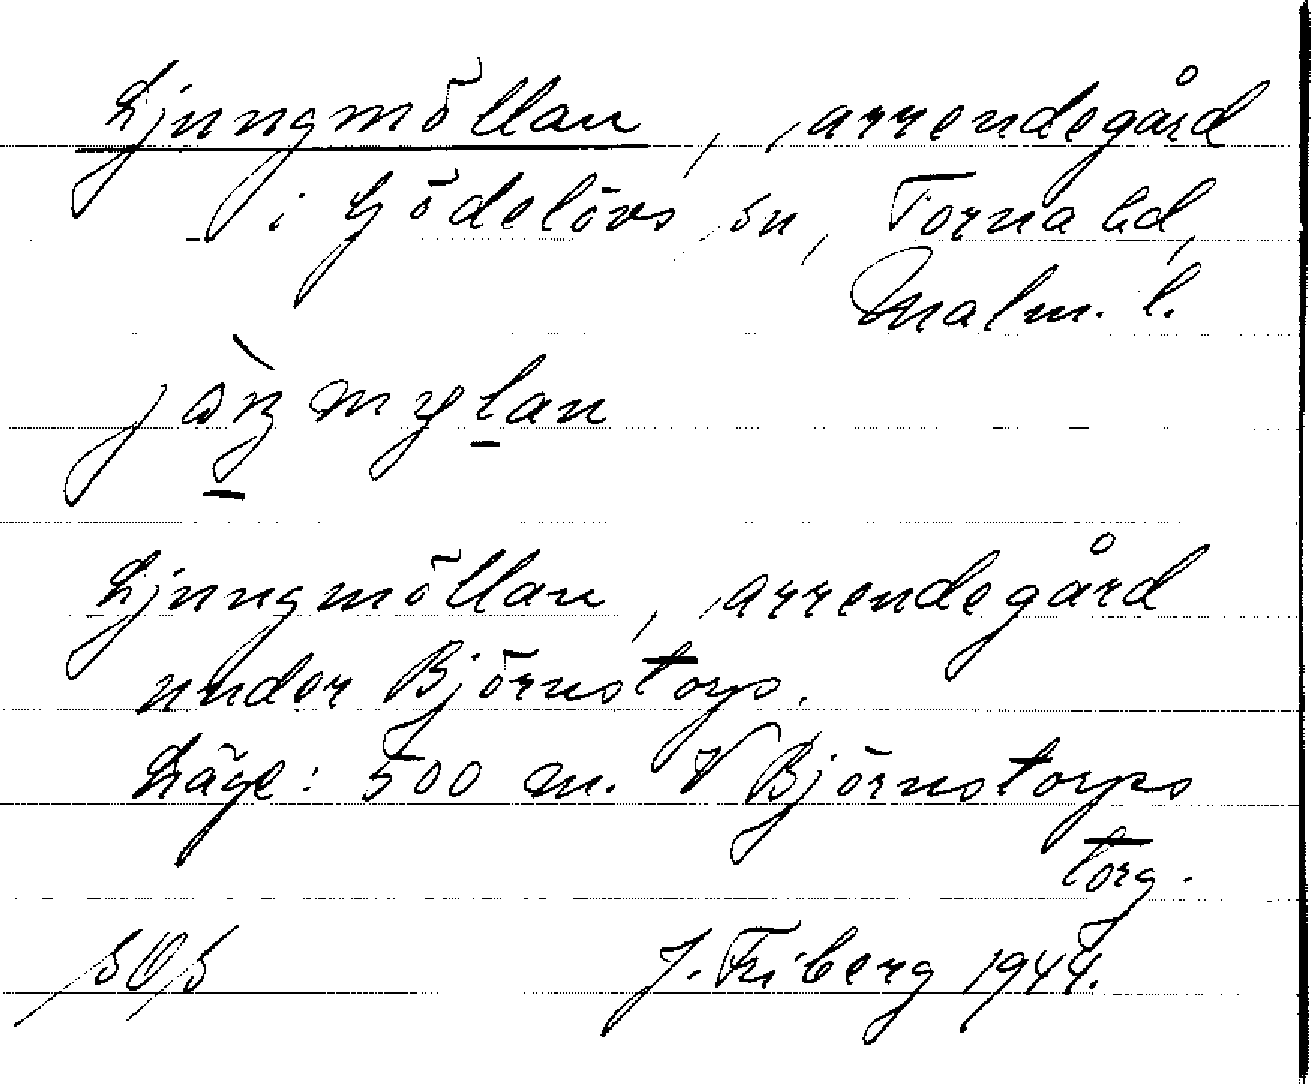 Ljungmöllan, arrendegård
i Gödelövs sn, Torna hd,
Malm. l.
Ljungmöllan, arrendegård
under Björnstorps.
Läge: 500 m. V Björnstorps
torg.
J. Friberg 1944.